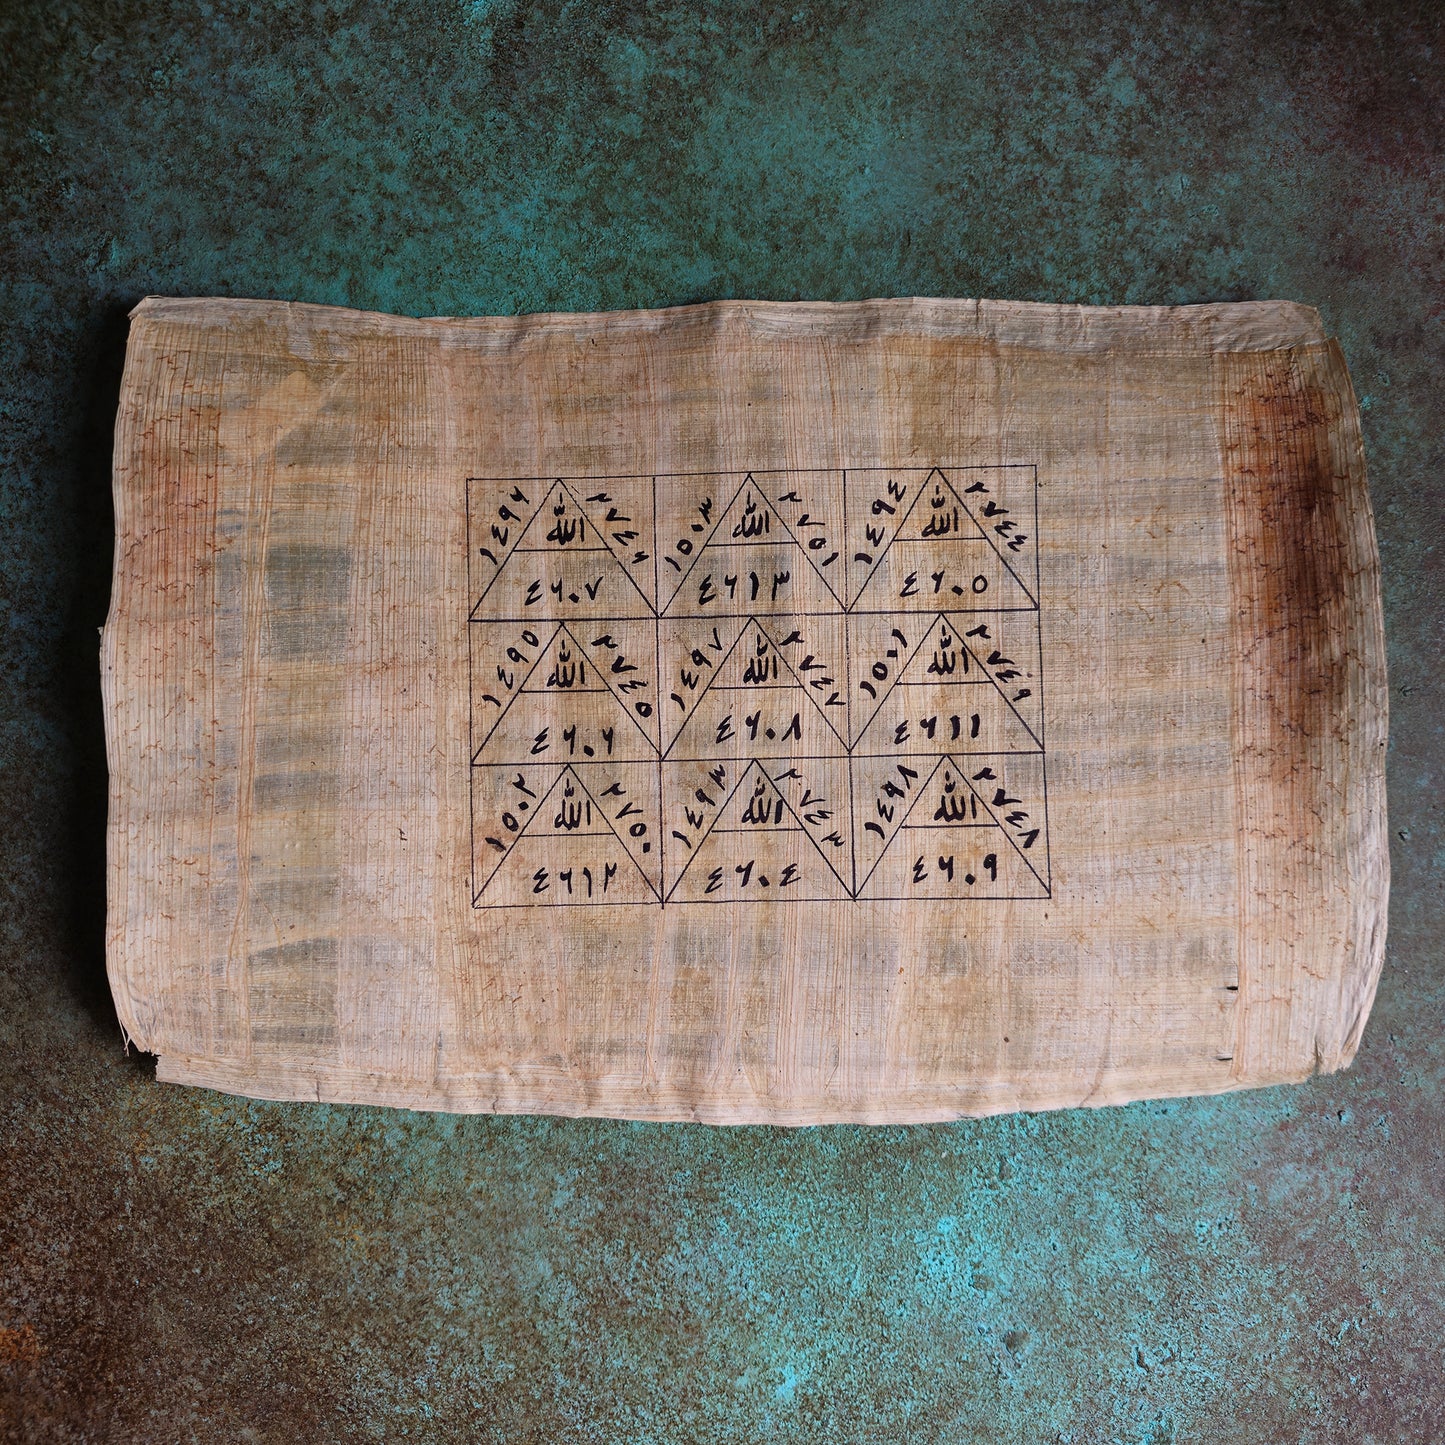 ١٤٩٤ الله ٢٧٤٤
٤٦٠٥
١٥٠٣ الله ٢٧٥١
٤٦١٣
١٤٩٦ الله ٢٧٤٦
٤٦٠٧
١٥٠١ الله ٢٧٤٩
٤٦١١
١٤٩٧ الله ٢٧٤٧
٤٦٠٨
١٤٩٥ الله ٢٧٤٥
٤٦٠٦
١٤٩٨ الله ٢٧٤٨
٤٦٠٩
١٤٩٣ الله ٢٧٤٣
٤٦٠٤
١٥٠٢ الله ٢٧٥٠
٤٦١٢